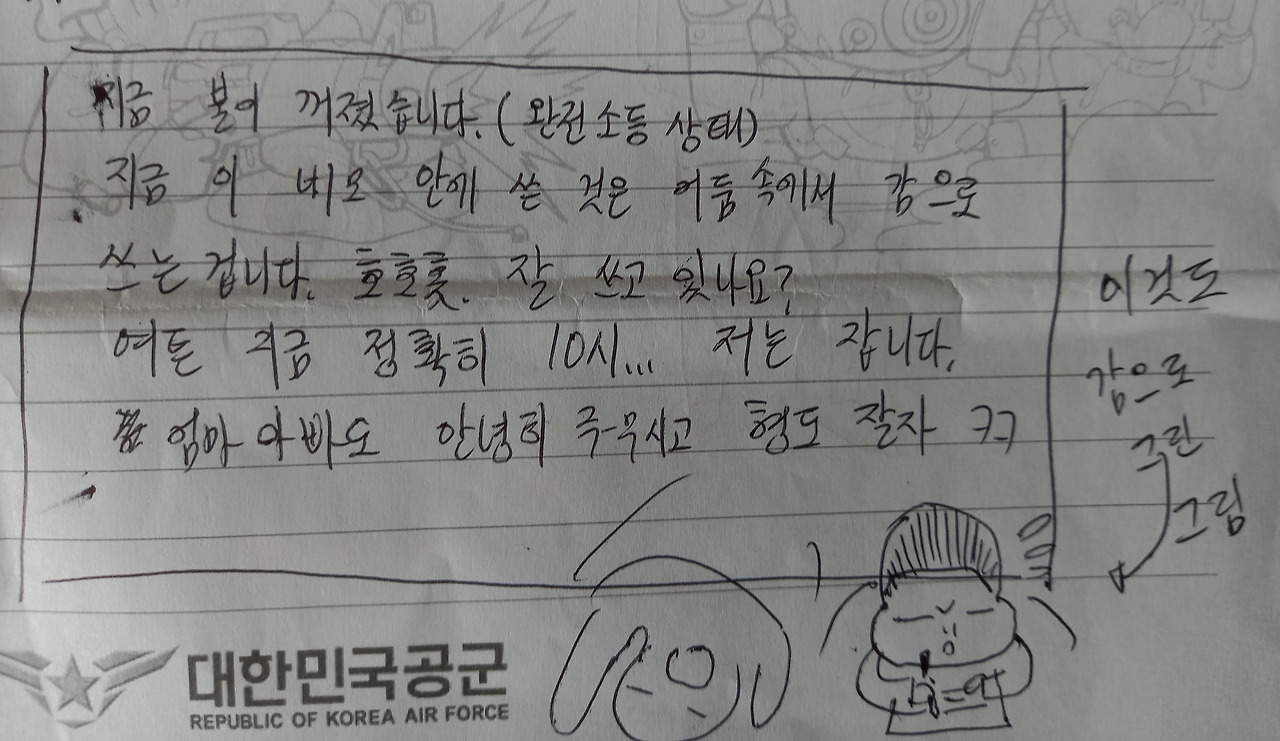 지금 불이 꺼졌습니다. (완전소등 상태)
지금 이 네모 안에 쓴 것은 어둠속에서 감으로
쓰는 겁니다. 호호홋. 잘 쓰고 있나요?
여튼 지금 정확히 10시... 저는 잡니다.
엄마 아빠도 안녕히 주무시고 형도 잘자 ㅋㅋ
이것도
감으로
그린
그림
대한민국공군
REPUBLIC OF KOREA AIR FORCE